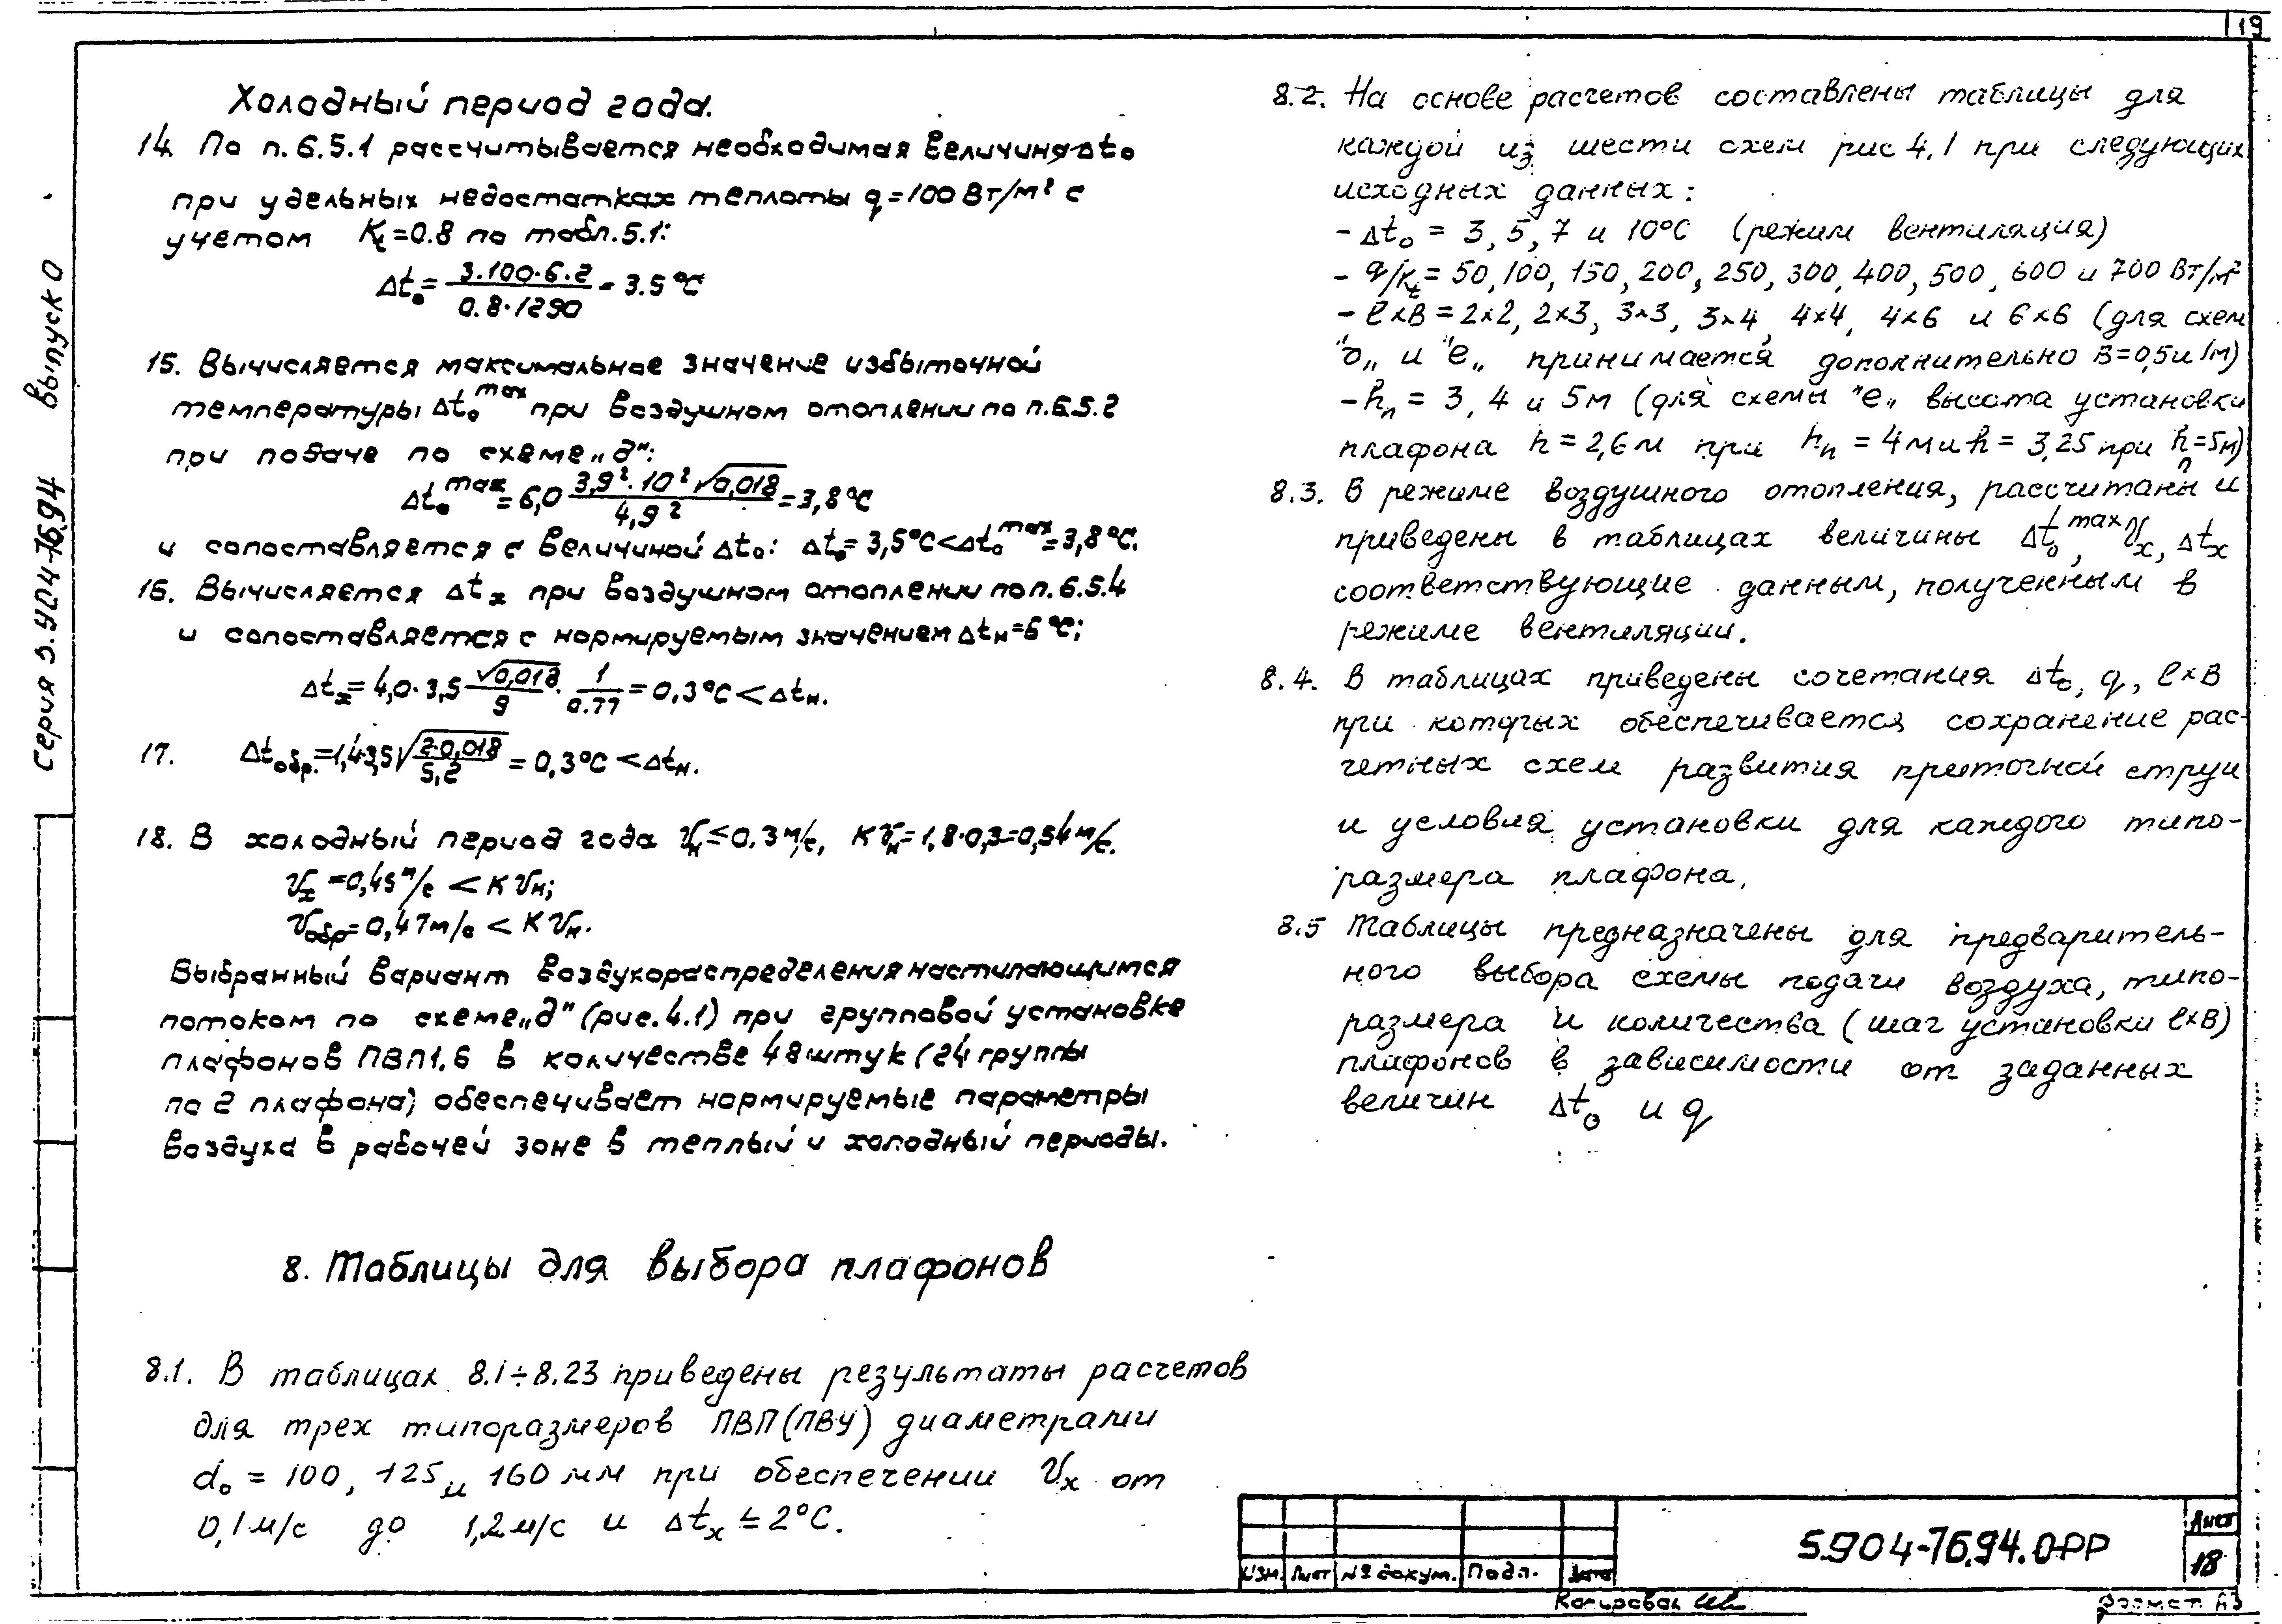 19
Серия 5.904-76.94 выпуск 0
Холодный период года.
14. По п.6.5.1 рассчитывается необходимая величина Δt₀
при удельных недостатках теплоты q=100 Вт/м² с
учетом Kt=0.8 по табл.5.1:
Δt₀= 3·100·6·2 / 0.8·1290 = 3.5°С
15. Вычисляется максимальное значение избыточной
температуры Δt₀max при воздушном отоплении по п.6.5.2
при подаче по схеме „д":
Δt₀max = 6,0 3,9²·10²√0,018 / 4,9² = 3,8°С
и сопоставляется с величиной Δt₀: Δt₀= 3,5°С<Δt₀max=3,8°С.
16. Вычисляется Δtx при воздушном отоплении по п.6.5.4
и сопоставляется с нормируемым значением Δtн=6°С;
Δtx= 4,0·3,5 √0,018 / 9 · 1 / 0.77 = 0,3°С < Δtн.
17. Δtобр.=1,4·3,5√2·0,018 / 5,2 = 0,3°С < Δtн.
18. В холодный период года Vн≤0.3 м/с, KVн=1,8·0,3=0,54 м/с.
Vx=0,45 м/с < KVн;
Vобр=0,47 м/с < KVн.
Выбранный вариант воздухораспределения настилающимся
потоком по схеме „д" (рис.4.1) при групповой установке
плафонов ПВП1.6 в количестве 48 штук (24 группы
по 2 плафона) обеспечивает нормируемые параметры
воздуха в рабочей зоне в теплый и холодный периоды.
8. Таблицы для выбора плафонов
8.1. В таблицах 8.1÷8.23 приведены результаты расчетов
для трех типоразмеров ПВП(ПВУ) диаметрами
d₀ = 100, 125 и 160 мм при обеспечении Vx от
0,1м/с до 1,2м/с и Δtx ≤ 2°С.
8.2. На основе расчетов составлены таблицы для
каждой из шести схем рис 4.1 при следующих
исходных данных:
- Δt₀ = 3, 5, 7 и 10°С (режим вентиляция)
- q/Kt = 50, 100, 150, 200, 250, 300, 400, 500, 600 и 700 Вт/м²
- l×B = 2×2, 2×3, 3×3, 3×4, 4×4, 4×6 и 6×6 (для схем
"б„ и "е„ принимается дополнительно B=0,5 и 1м)
- hп = 3, 4 и 5м (для схемы "е„ высота установки
плафона h = 2,6м при hп = 4м и h = 3,25 при hп=5м)
8.3. В режиме воздушного отопления, рассчитаны и
приведены в таблицах величины Δt₀max, Vx, Δtx
соответствующие данным, полученным в
режиме вентиляции.
8.4. В таблицах приведены сочетания Δt₀, q, l×B
при которых обеспечивается сохранение рас-
четных схем развития приточной струи
и условия установки для каждого типо-
размера плафона.
8.5 Таблицы предназначены для предваритель-
ного выбора схемы подачи воздуха, типо-
размера и количества (шаг установки l×B)
плафонов в зависимости от заданных
величин Δt₀ и q
Изм. Лист № докум. Подп. Дата
5.904-76.94.0-РР
Лист
18
Копировал
Формат А3